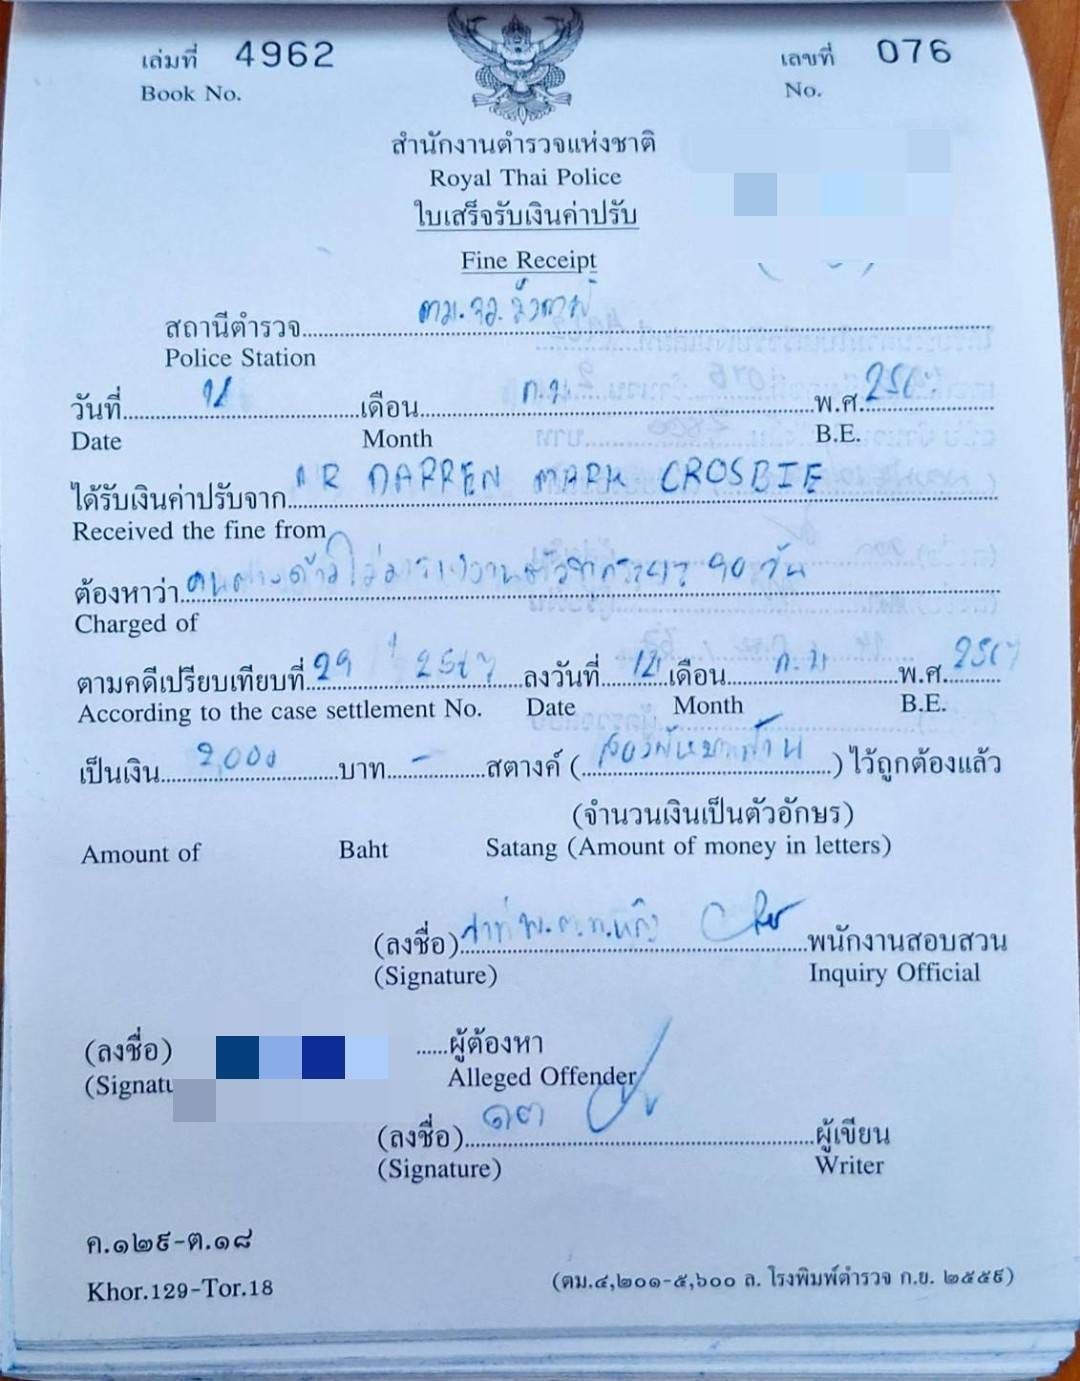 เล่มที่ 4962 เลขที่ 076
Book No. No.
สำนักงานตำรวจแห่งชาติ
Royal Thai Police
ใบเสร็จรับเงินค่าปรับ
Fine Receipt
สถานีตำรวจ
Police Station
วันที่ 12 เดือน ก.พ พ.ศ.
Date Month B.E.
ได้รับเงินค่าปรับจาก MR DARREN MARK CROSBIE
Received the fine from
ต้องหาว่า คนต่างด้าวไม่มารายงานตัว 90 วัน
Charged of
ตามคดีเปรียบเทียบที่ 29 / 2567 ลงวันที่ 12 เดือน ก.พ พ.ศ. 2567
According to the case settlement No. Date Month B.E.
เป็นเงิน 2,000 บาท - สตางค์ (สองพันบาทถ้วน) ไว้ถูกต้องแล้ว
(จำนวนเงินเป็นตัวอักษร)
Amount of Baht Satang (Amount of money in letters)
(ลงชื่อ) พนักงานสอบสวน
(Signature) Inquiry Official
(ลงชื่อ) ผู้ต้องหา
(Signatu Alleged Offender
(ลงชื่อ) ผู้เขียน
(Signature) Writer
ค.๑๒๙-ต.๑๘
Khor.129-Tor.18
(ตม.๔,๒๐๑-๕,๖๐๐ ล. โรงพิมพ์ตำรวจ ก.ย. ๒๕๕๙)